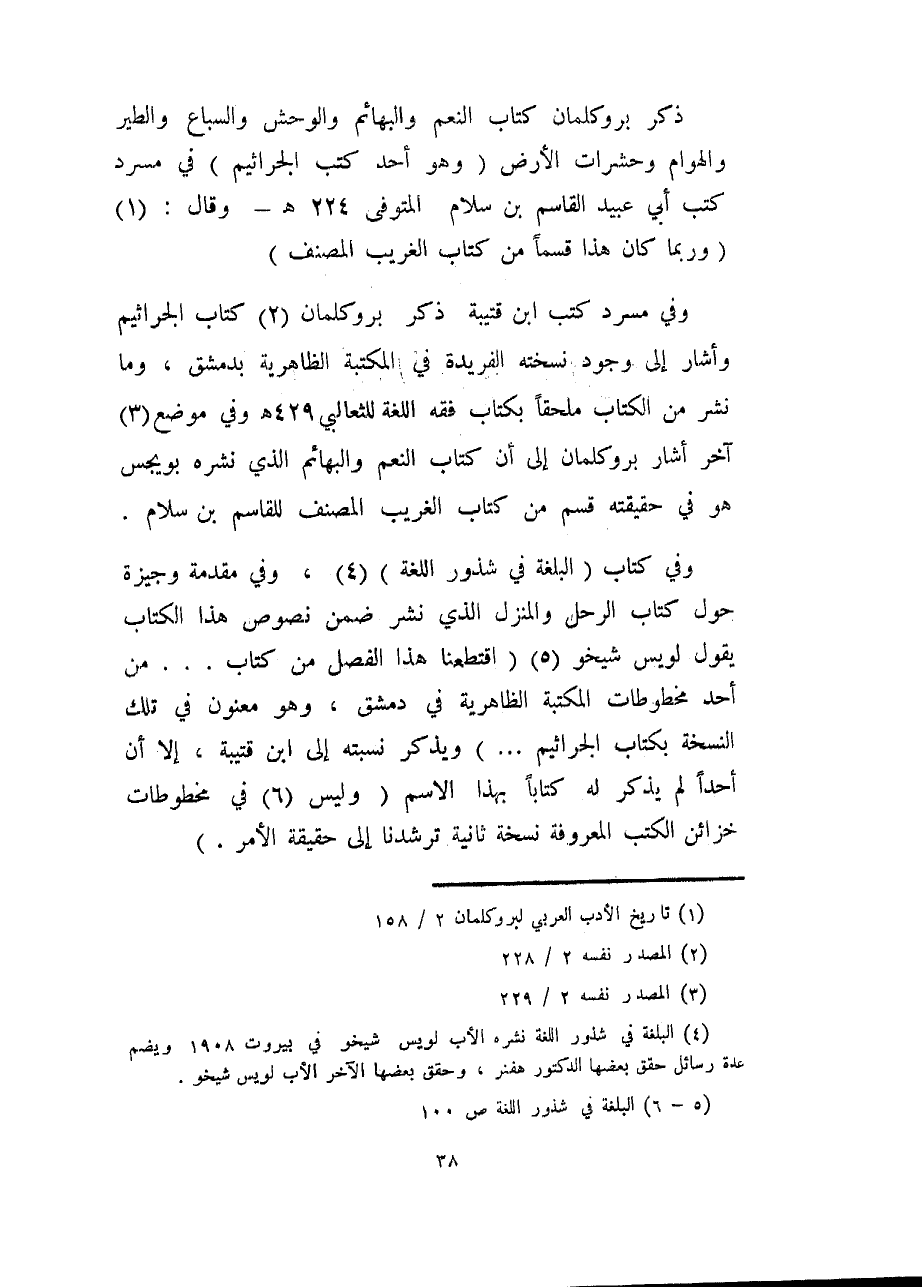 ذكر بروكلمان كتاب النعم والبهائم والوحش والسباع والطير
والهوام وحشرات الأرض ( وهو أحد كتب الجراثيم ) في مسرد
كتب أبي عبيد القاسم بن سلام المتوفى ٢٢٤ هـ – وقال : (١)
( وربما كان هذا قسماً من كتاب الغريب المصنف )
وفي مسرد كتب ابن قتيبة ذكر بروكلمان (٢) كتاب الجراثيم
وأشار إلى وجود نسخته الفريدة في المكتبة الظاهرية بدمشق ، وما
نشر من الكتاب ملحقاً بكتاب فقه اللغة للثعالبي ٤٢٩ه وفي موضع (٣)
آخر أشار بروكلمان إلى أن كتاب النعم والبهائم الذي نشره بويجس
هو في حقيقته قسم من كتاب الغريب المصنف للقاسم بن سلام .
وفي كتاب ( البلغة في شذور اللغة ) (٤) ، وفي مقدمة وجيزة
حول كتاب الرحل والمنزل الذي نشر ضمن نصوص هذا الكتاب
يقول لويس شيخو (٥) ( اقتطعنا هذا الفصل من كتاب . . . من
أحد مخطوطات المكتبة الظاهرية في دمشق ، وهو معنون في تلك
النسخة بكتاب الجراثيم ... ) ويذكر نسبته إلى ابن قتيبة ، إلا أن
أحداً لم يذكر له كتاباً بهذا الاسم ( وليس (٦) في مخطوطات
خزائن الكتب المعروفة نسخة ثانية ترشدنا إلى حقيقة الأمر . )
(١) تاريخ الأدب العربي لبروكلمان ٢ / ١٥٨
(٢) المصدر نفسه ٢ / ٢٢٨
(٣) المصدر نفسه ٢ / ٢٢٩
(٤) البلغة في شذور اللغة نشره الأب لويس شيخو في بيروت ١٩٠٨ ويضم
عدة رسائل حقق بعضها الدكتور هفنر ، وحقق بعضها الآخر الأب لويس شيخو .
(٥ – ٦) البلغة في شذور اللغة ص ١٠٠
٣٨